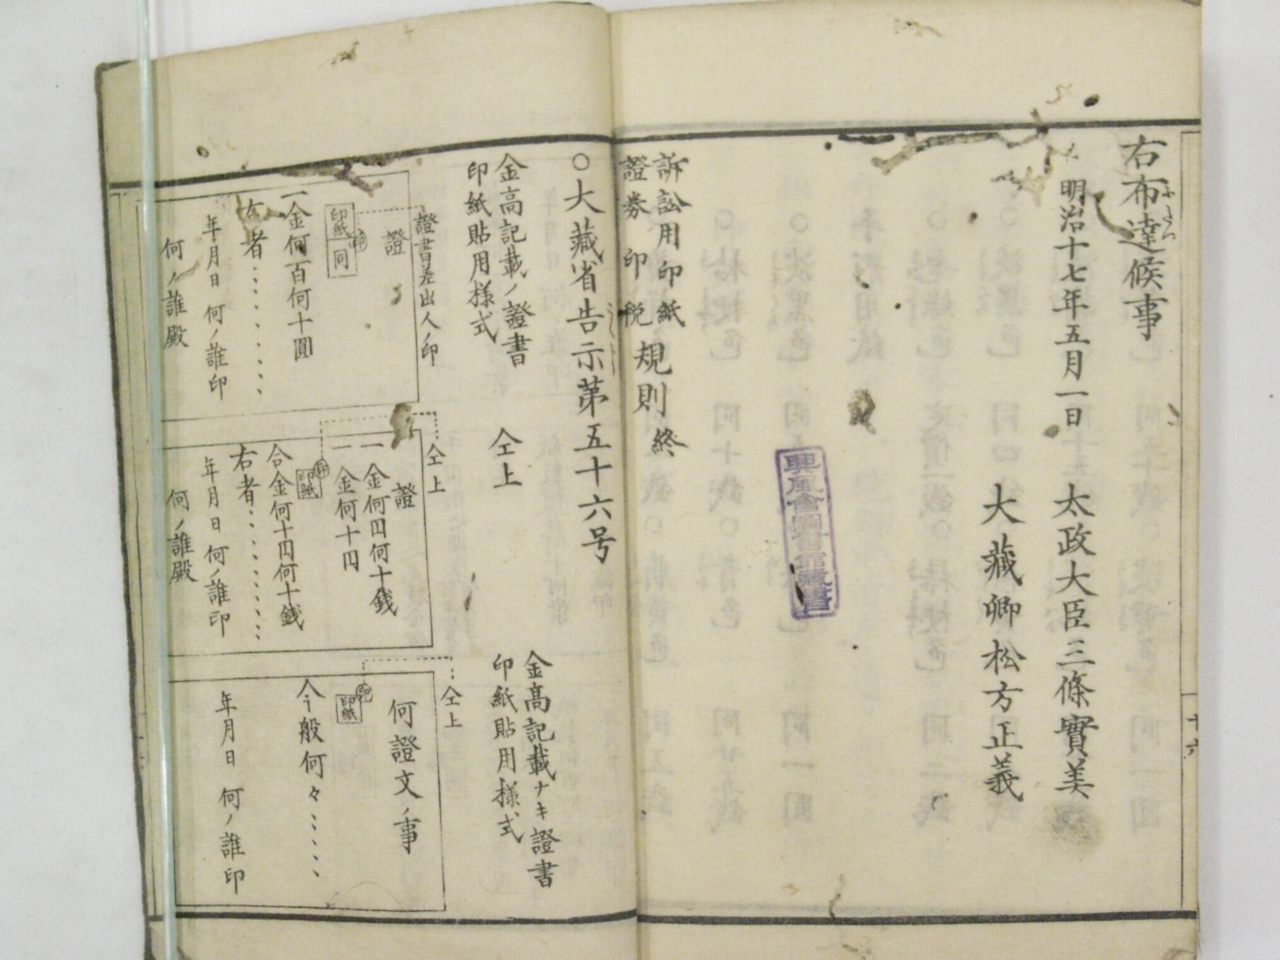 右布達候事
明治十七年五月一日
太政大臣三條實美
大藏卿松方正義
興風會圖書館藏書
十六
訴訟用印紙
證券印税規則終
○大藏省告示第五十六号
金高記載ノ證書
印紙貼用様式
仝上
金高記載ナキ證書
印紙貼用様式
證書差出人ノ印
證
印紙 同
印
一金何百何十圓
右者
年月日 何ノ誰印
何ノ誰殿
仝上
證
一金何円何十銭
一金何十円
印紙
合金何十円何十銭
右者
年月日 何ノ誰印
何ノ誰殿
仝上
何證文ノ事
印紙
今般何々
年月日 何ノ誰印